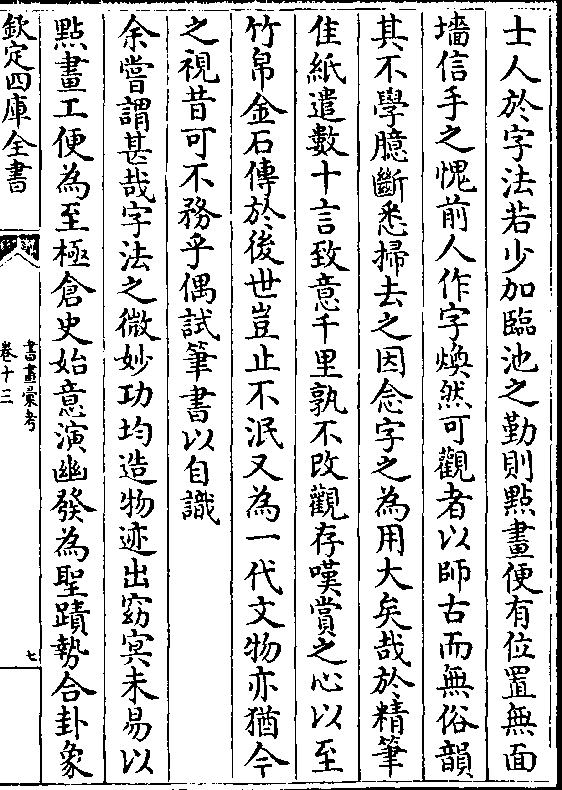 士人於字法若少加臨池之勤則點畫便有位置無面
墻信手之愧前人作字煥然可觀者以師古而無俗韻
其不學臆斷悉掃去之因念字之為用大矣哉於精筆
佳紙遣數十言致意千里孰不改觀存嘆賞之心以至
竹帛金石傳於後世豈止不泯又為一代文物亦猶今
之視昔可不務乎偶試筆書以自識
余嘗謂甚哉字法之微妙功均造物迹出窈冥未易以
點畫工便為至極倉史始意演幽發為聖蹟勢合卦象
欽定四庫全書
書畫彙考
卷十三
七